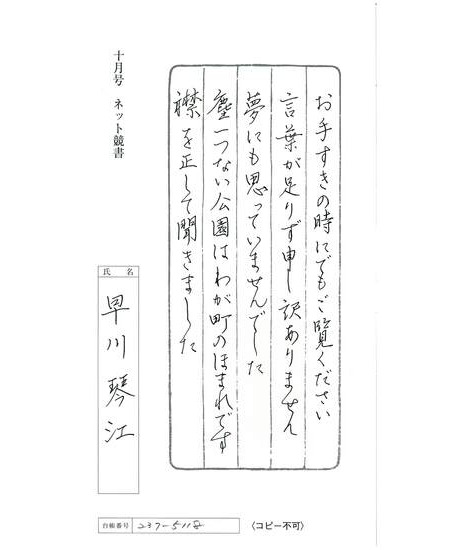 お手すきの時にでもご覧ください
言葉が足りず申し訳ありません
夢にも思っていませんでした
塵一つない公園はわが町のほまれです
襟を正して聞きました
十月号 ネット競書
氏名
早川琴江
台帳番号 237-5118
〈コピー不可〉